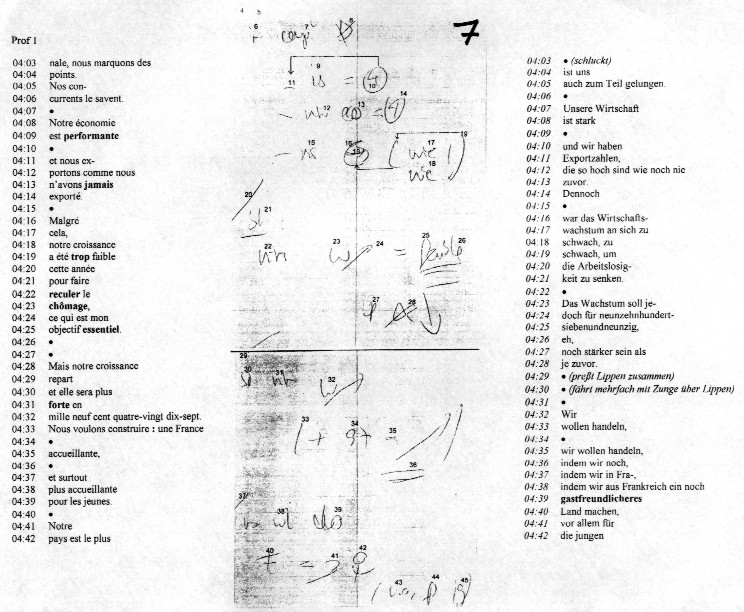 7
Prof 1
04:03 nale, nous marquons des
04:04 points.
04:05 Nos con-
04:06 currents le savent.
04:07 •
04:08 Notre économie
04:09 est performante
04:10 •
04:11 et nous ex-
04:12 portons comme nous
04:13 n'avons jamais
04:14 exporté.
04:15 •
04:16 Malgré
04:17 cela,
04:18 notre croissance
04:19 a été trop faible
04:20 cette année
04:21 pour faire
04:22 reculer le
04:23 chômage,
04:24 ce qui est mon
04:25 objectif essentiel.
04:26 •
04:27 •
04:28 Mais notre croissance
04:29 repart
04:30 et elle sera plus
04:31 forte en
04:32 mille neuf cent quatre-vingt dix-sept.
04:33 Nous voulons construire : une France
04:34 •
04:35 accueillante,
04:36 •
04:37 et surtout
04:38 plus accueillante
04:39 pour les jeunes.
04:40 •
04:41 Notre
04:42 pays est le plus
4 5
6 7 8
9
11 = 4 10
12 13 = 4 14
15 16 ( wie ! ) 17 19
wie 18
20
21
22 23 24 = 25 26
27 28
29
30 31 32
33 34 35
36
37
38 39
40 = 41 42
43 44 45
04:03 • (schluckt)
04:04 ist uns
04:05 auch zum Teil gelungen.
04:06 •
04:07 Unsere Wirtschaft
04:08 ist stark
04:09 •
04:10 und wir haben
04:11 Exportzahlen,
04:12 die so hoch sind wie noch nie
04:13 zuvor.
04:14 Dennoch
04:15 •
04:16 war das Wirtschafts-
04:17 wachstum an sich zu
04.18 schwach, zu
04:19 schwach, um
04:20 die Arbeitslosig-
04:21 keit zu senken.
04:22 •
04:23 Das Wachstum soll je-
04:24 doch für neunzehnhundert-
04:25 siebenundneunzig,
04:26 eh,
04:27 noch stärker sein als
04:28 je zuvor.
04:29 • (preßt Lippen zusammen)
04:30 • (fährt mehrfach mit Zunge über Lippen)
04:31 •
04:32 Wir
04:33 wollen handeln,
04:34 •
04:35 wir wollen handeln,
04:36 indem wir noch,
04:37 indem wir in Fra-,
04:38 indem wir aus Frankreich ein noch
04:39 gastfreundlicheres
04:40 Land machen,
04:41 vor allem für
04:42 die jungen